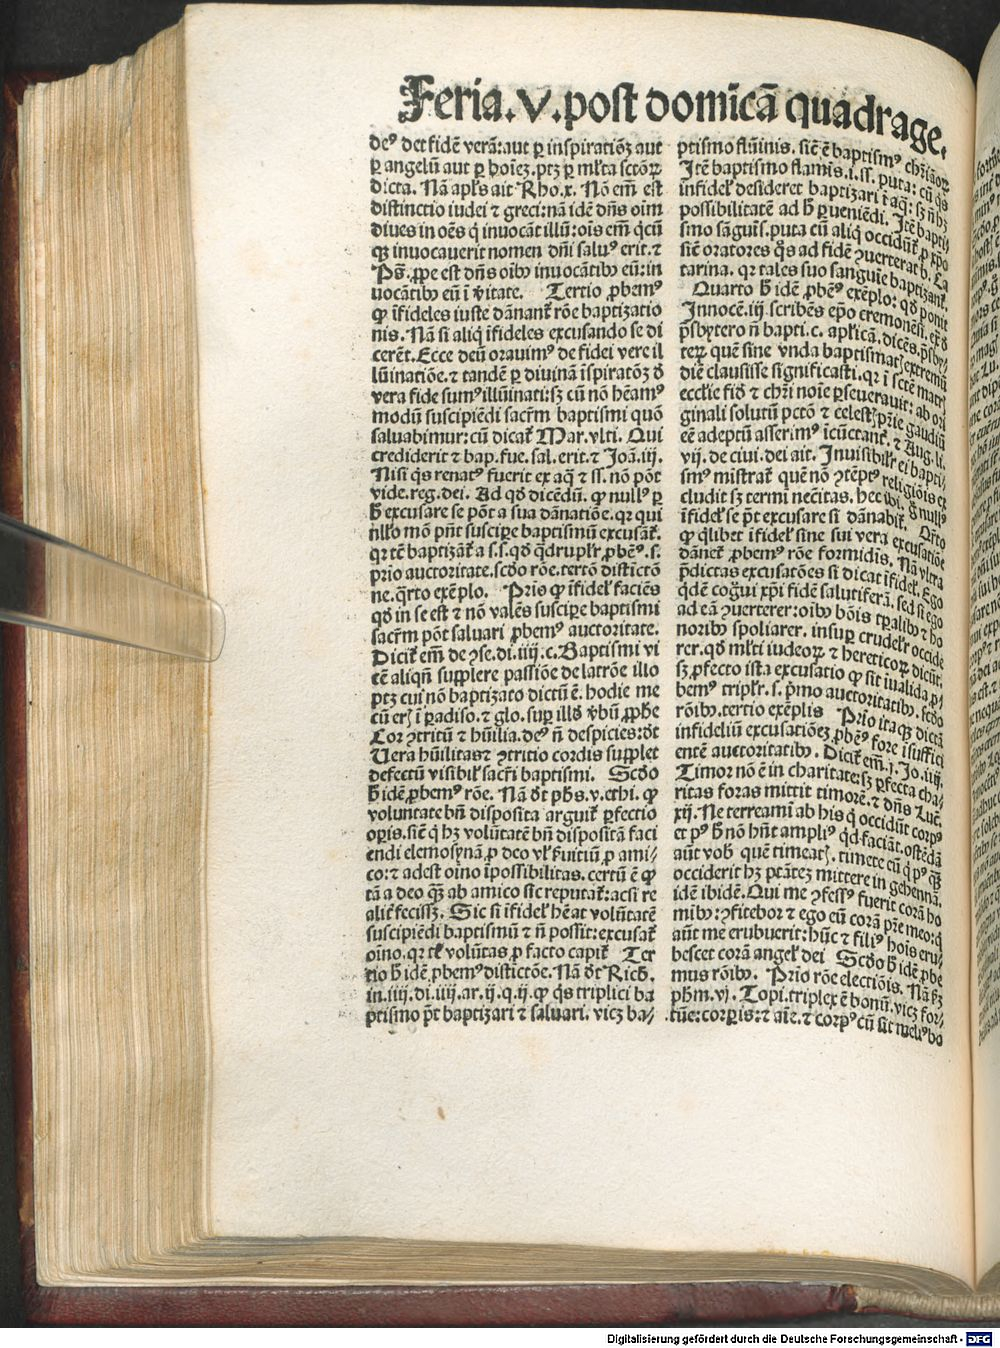 Feria.V.post domicā quadrage.
deꝰ det fidē verā:aut ꝑ inspirationꝫ aut
ꝑ angelū aut ꝑ hoieꝫ.ptꝫ ꝑ ml'ta sctōꝝ
dicta. Nā apl's ait Rho.x. Nō em̄ est
distinctio iudei ⁊ greci:nā idē dn̄s oim
diues in oēs q̇ inuocāt illū:oīs em̄ qcū
qꝫ inuocauerit nomen dn̄i saluꝰ erit.⁊
Ps̄.ꝓpe est dn̄s oībꝰ inuocātibꝰ eū:in
uocātibꝰ eū ī v̇itate. Tertio ꝓbemꝰ
ꝙ īfideles iuste dānant̄ rōe baptizatio
nis. Nā si aliq̇ īfideles excusando se di
cerēt. Ecce deū orauimꝰ de fidei vere il
lūinatiōe.⁊ tandē ꝑ diuinā īspiratōꝫ ð
vera fide sumꝰ illūinati:sꝫ cū nō hēamꝰ
modū suscipiēdi sacrm̄ baptismi quō
saluabimur:cū dicat̄ Mar.vlti. Qui
crediderit ⁊ bap.fue.sal.erit.⁊ Joā.iij.
Nisi q̇s renatꝰ fuerit ex aq̄ ⁊ ss. nō pōt
vide.reg.dei. Ad qð dicēdū. ꝙ nullꝰ ꝑ
ƀ excusare se pōt a sua dānatiōe.qꝛ qui
nll'o mō pn̄t suscipe baptismū excusāt̄.
qꝛ tē baptizāt̄ a s.s.qð q̄drupl'r ꝓbeꝰ.s.
prio auctoritate.scðo rōe.tertō distictō
ne.q̄rto exēplo. Prio ꝙ īfidel' faciēs
qð in se est ⁊ nō valēs suscipe baptismi
sacrm̄ pōt saluari ꝓbemꝰ auctoritate.
Dicit̄ em̄ de ꝯse.di.iiij.c.Baptismi vi
cē aliqn̄ supplere passiōe de latrōe illo
ptꝫ cui nō baptizato dictū ē. hodie me
cū erꝫ ī ꝑadiso.⁊ glo.suꝑ illð v̇bū ꝓphe
Cor ꝯtritū ⁊ hūilia.deꝰ n̄ despicies:ðt
Uera hūilitas⁊ ꝯtritio cordis supplet
defectū visibil' sacr̄i baptismi. Scðo
ƀ idē ꝓbemꝰ rōe. Nā ðt phs.v.ethi. ꝙ
voluntate bn̄ disposita arguit̄ ꝑfectio
oꝑis.sic̄ q̇ hꝫ volūtatē bn̄ dispositā faci
endi elemosynā ꝓ deo vl' fuitiū ꝓ ami/
co:⁊ adest oīno īpossibilitas.certū ē ꝙ
tā a deo q̄ꝫ ab amico sic reputat̄:acsi re
alit̄ fecissꝫ. Sic si īfidel' hēat volūtatē
suscipiēdi baptismū ⁊ n̄ possit:excusat̄
oīno.qꝛ tē volūtas ꝓ facto capit̄ Ter
tio ƀ idē ꝓbemꝰ distictōe. Nā ðt Rich.
in.iiij.di.iiij.ar.ij.q.ij.ꝙ q̇s triplici ba
ptismo pt̄ baptizari ⁊ saluari. vicꝫ ba/
ptismo flūinis. sic̄ ē baptismꝰ chr̄iāoꝝ
Itē baptismo flamīs.i.ss. puta: cū q̇s
infidel' desideret baptizari ī aq̄: sꝫ n̄ hꝫ
possibilitatē ad ƀ ꝑueniēdi. Itē bapti
smo sāguīs.puta cū aliq̇ occidūt̄ ꝓ xp̄o
sic̄ oratores q̄s ad fidē ꝯuerterat b. Ca
tarina. qꝛ tales suo sanguīe baptizant̄.
Quarto ƀ idē ꝓbeꝰ exēplo: qð ponit
Innocē.iij scribēs ep̄o cremonen̄. ex ð
p̄sbytero n̄ bapti.c. apl'icā.dicēs.p̄sby/
terꝝ quē sine vnda baptismatꝫ extremū
diē clausisse significasti.qꝛ ī sctē matrꝫ
eccl'ie fið ⁊ chr̄i noīe ꝑseuerauit: ab ori
ginali solutū pctō ⁊ celestꝫ pr̄ie gaudiū
eē adeptū asserimꝰ īcūctant̄. ⁊ Aug.li.
vij. de ciui.dei ait. Inuisibil'r ei bapti/
smꝰ mīstrat̄ quē nō ꝯtēptꝰ religiōis ex
cludit sꝫ termi necītas. hec ibi. g̊ nullꝰ
īfidel' se pt̄ excusare si dānabit̄. Qr̄to
ꝙ q̇libet īfidel' sine sui vera excusatiōe
dānet̄ ꝓbemꝰ rōe formidīs. Nā vltra
p̄dictas excusatōes si dicat īfidel'. Ego
q̇dē cogui xp̄i fidē salutiferā. sed si ego
ad eā ꝯuerterer:oībꝰ bōis tꝑalibꝰ ⁊ ho
noribꝰ spoliarer. insuꝑ crudel'r occide
rer.qð ml'ti iudeoꝝ ⁊ hereticoꝝ dicūt.
sꝫ ꝓfecto ista excusatio ꝙ sit īualida ꝓ/
bemꝰ tripl'r. s. p̄mo auctoritatibꝰ. scðo
rōibꝰ.tertio exēplis Prio itaqꝫ dictā
infideliū excusationeꝫ ꝓbemꝰ fore īsuffici
entē auctoritatibꝰ. Dicit̄ em̄.j. Jo.iiij.
Timor nō ē in charitate:sꝫ ꝑfecta cha/
ritas foras mittit timorē.⁊ dn̄s Luc̄.
xij. Ne terreamī ab his q̇ occidūt corpꝰ
et pꝰ ƀ nō hn̄t ampliꝰ qd faciāt.ostēdā
aūt vob̄ quē timeatꝫ. timete eū q̇ pꝰ q̄ꝫ
occiderit hꝫ ptātē mittere in gehennā.
idē ibidē. Qui me ꝯfessꝰ fuerit corā ho
mībꝰ:ꝯfitebor ⁊ ego eū corā pr̄e meo:q̇
aūt me erubuerit:hūc ⁊ filiꝰ hoīs eru/
bescet corā angel' dei Scðo ƀ idē ꝓbe
mus rōibꝰ. Prio rōe electiōis. Nā ẜꝫ
phm̄.vj. Topi.triplex ē bonū. vicꝫ for/
tūe:corꝑis:⁊ aīe.⁊ corpꝰ cū sit meliꝰ bo
Digitalisierung gefördert durch die Deutsche Forschungsgemeinschaft - DFG